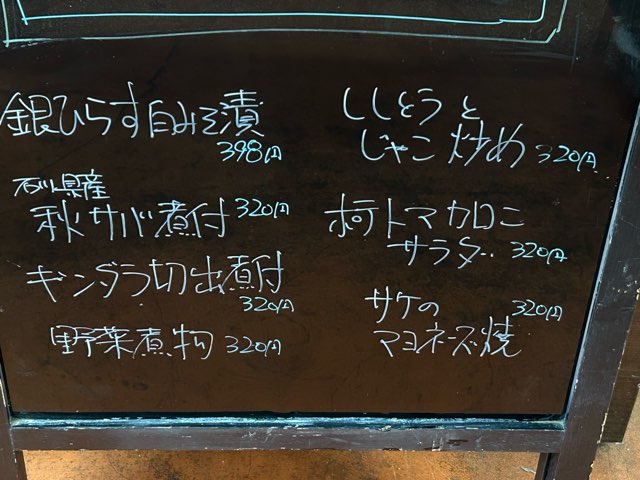 銀ひらす白みそ漬
398円
石川県産
秋サバ煮付 320円
ギンダラ切出煮付
320円
野菜煮物 320円
ししとうと
じゃこ炒め 320円
ポテトマカロニ
サラダ 320円
サケの 320円
マヨネーズ焼